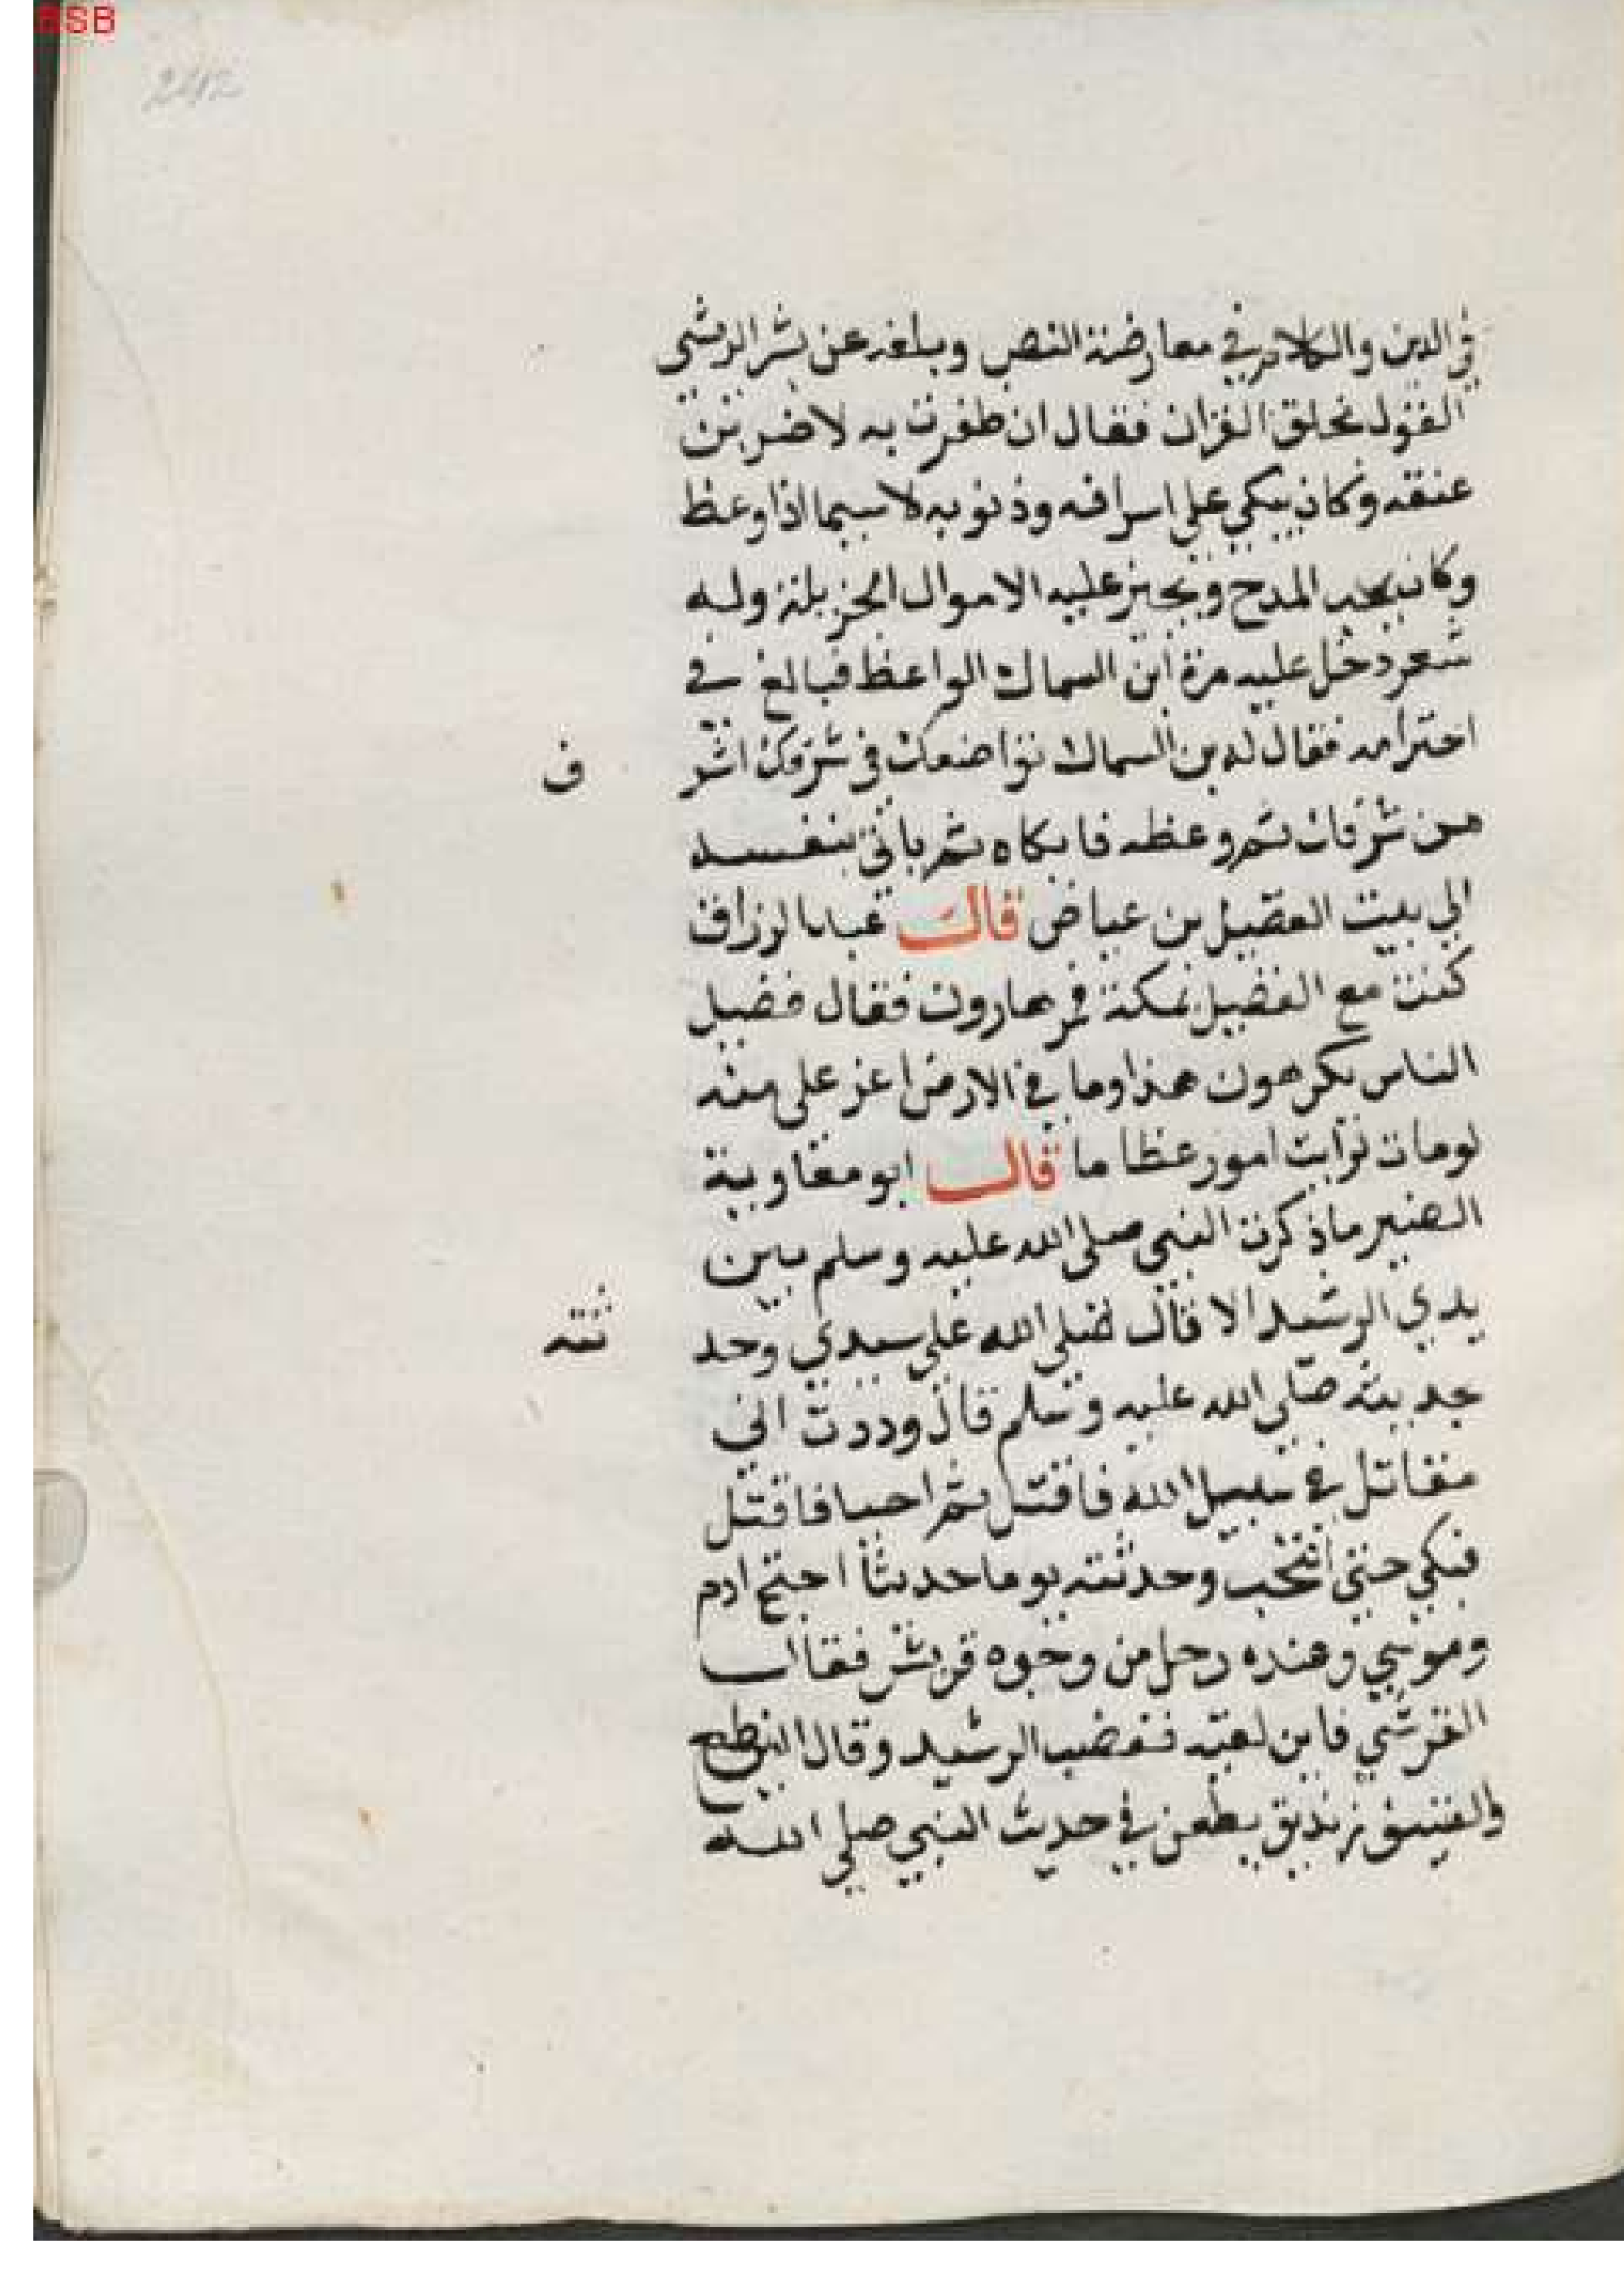 BSB
242
في الدين والكلام في معارضة النص وبلغه عن بشر المريشي
القول بخلق القران فقال ان ظفرت به لاضربن
عنقه وكان يبكي على اسرافه وذنوبه لا سيما اذا وعظ
وكان يحب المدح ويجيز عليه الاموال الجزيلة وله
شعر دخل عليه مرة ابن السماك الواعظ فبالغ في
احترامه فقال له بن السماك تواضعك في شرفك اشر
ف
من شرفك ثم وعظه فابكاه ثم ياتي بنفسه
الى بيت الفضيل بن عياض قال عبد الرزاق
كنت مع الفضيل بمكة فمر هارون فقال فضيل
الناس يكرهون هذا وما في الارض اعز على منه
لومات لرايت امور عظاما قال ابو معاوية
الضير ما ذكرت النبي صلى الله عليه وسلم بين
يدي الرشيد الا قال صلى الله على سيدي وحد
ثته
حديثه صلى الله عليه وسلم قال وددت اني
مقاتل في سبيل الله فاقتل ثم احيا فاقتل
فبكي حتى انتحب وحدثته يوما حديث احتج ادم
وموسي وعنده رجل من وجوه قريش فقال
القرشي فاين لقيه فغضب الرشيد وقال النطع
والسيف زنديق يطعن في حديث النبي صلى الله